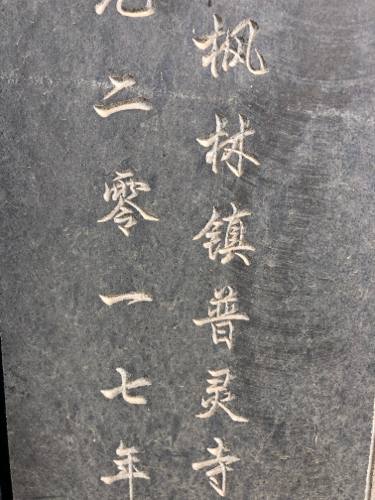 枫林镇普灵寺
元二零一七年